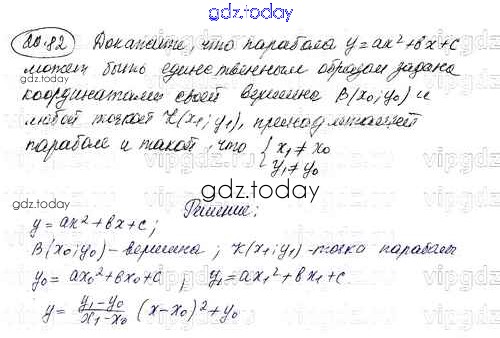 gdz.today
20.82 Докажите, что парабола y=ax²+bx+c
может быть единственным образом задана
координатами своей вершины B(x₀;y₀) и
любой точкой K(x₁;y₁), принадлежащей
параболе и такой, что { x₁≠x₀
y₁≠y₀
gdz.today
Решение:
y=ax²+bx+c;
B(x₀;y₀)-вершина; K(x₁;y₁)-точка параболы
y₀=ax₀²+bx₀+c; y₁=ax₁²+bx₁+c
y= (y₁-y₀)/(x₁-x₀) (x-x₀)²+y₀
gdz.today